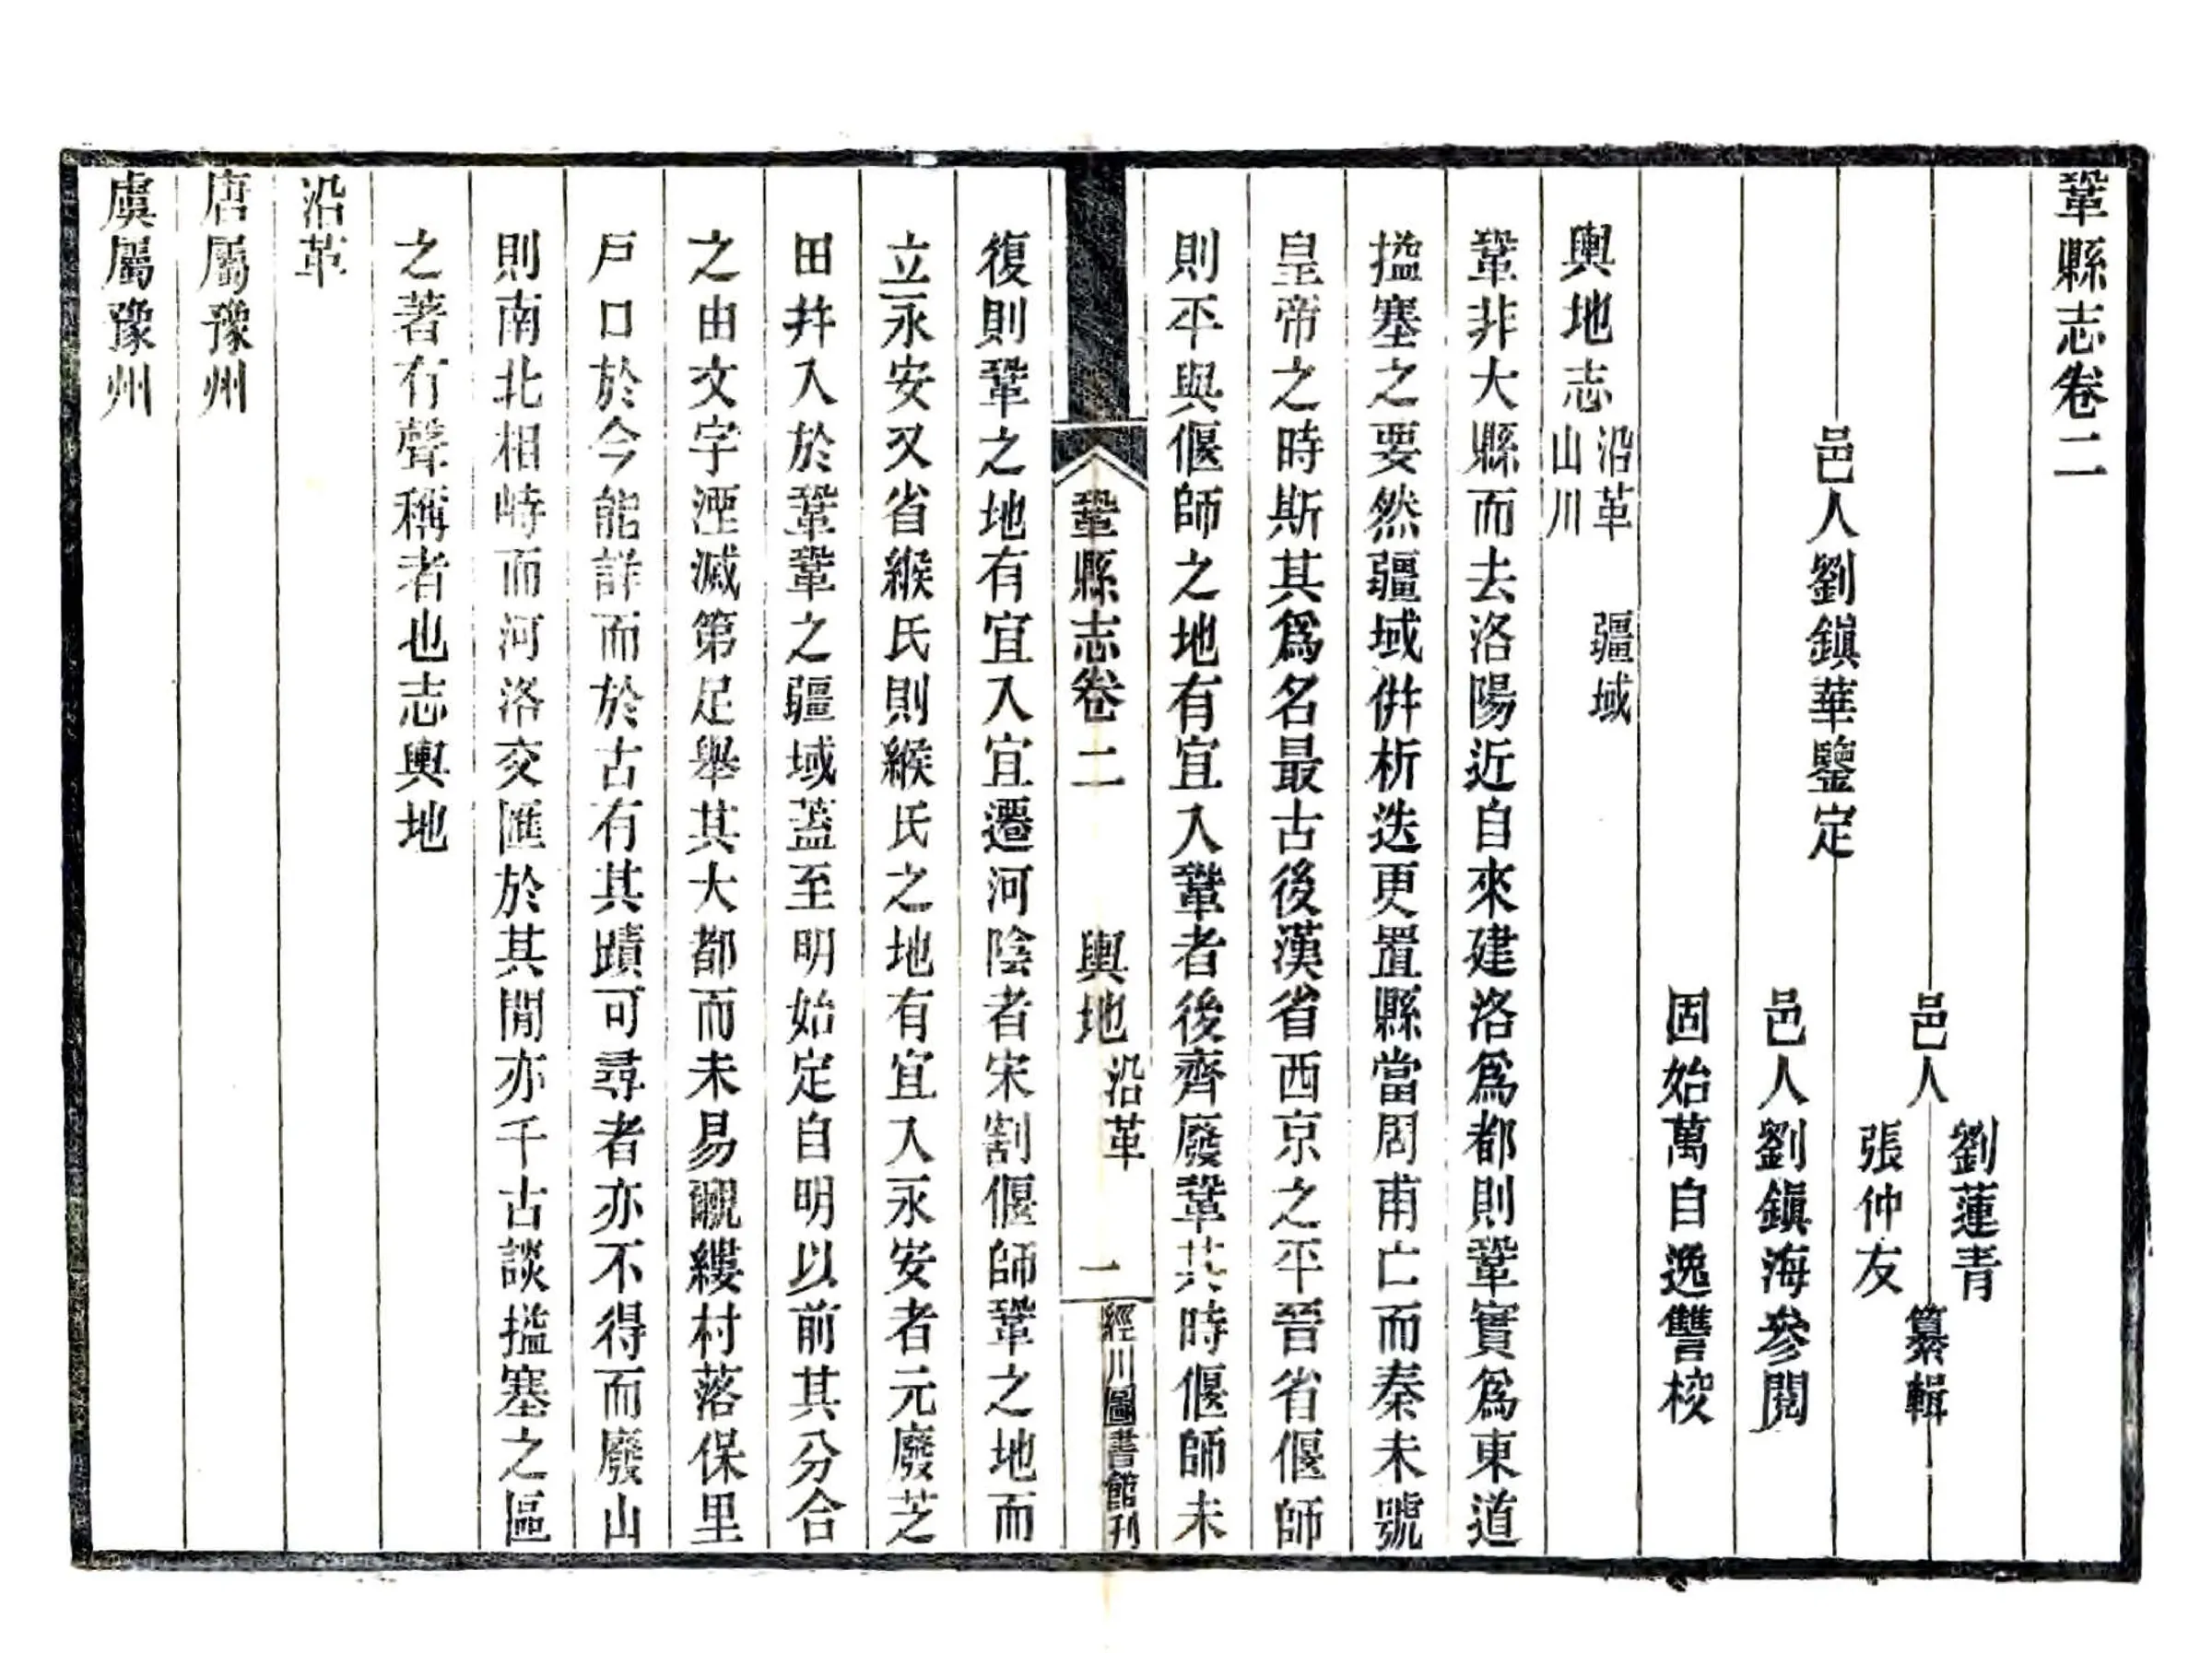 鞏縣志卷二
邑人劉蓮青
張仲友
纂輯
邑人劉鎮華鑒定
邑人劉鎮海參閱
固始萬自逸讐校
輿地志 沿革 疆域
山川
鞏非大縣而去洛陽近自來建洛爲都則鞏實爲東道
搤塞之要然疆域倂析迭更置縣當周甫亡而秦未號
皇帝之時斯其爲名最古後漢省西京之平晉省偃師
則平與偃師之地有宜入鞏者後齊廢鞏其時偃師未
鞏縣志卷二 輿地 沿革 一 經川圖書館刊
復則鞏之地有宜入宜遷河陰者宋割偃師鞏之地而
立永安又省緱氏則緱氏之地有宜入永安者元廢芝
田幷入於鞏鞏之疆域蓋至明始定自明以前其分合
之由文字湮滅第足舉其大都而未易覼縷村落保里
戶口於今能詳而於古有其蹟可尋者亦不得而廢山
則南北相峙而河洛交匯於其閒亦千古談搤塞之區
之著有聲稱者也志輿地
沿革
唐屬豫州
虞屬豫州